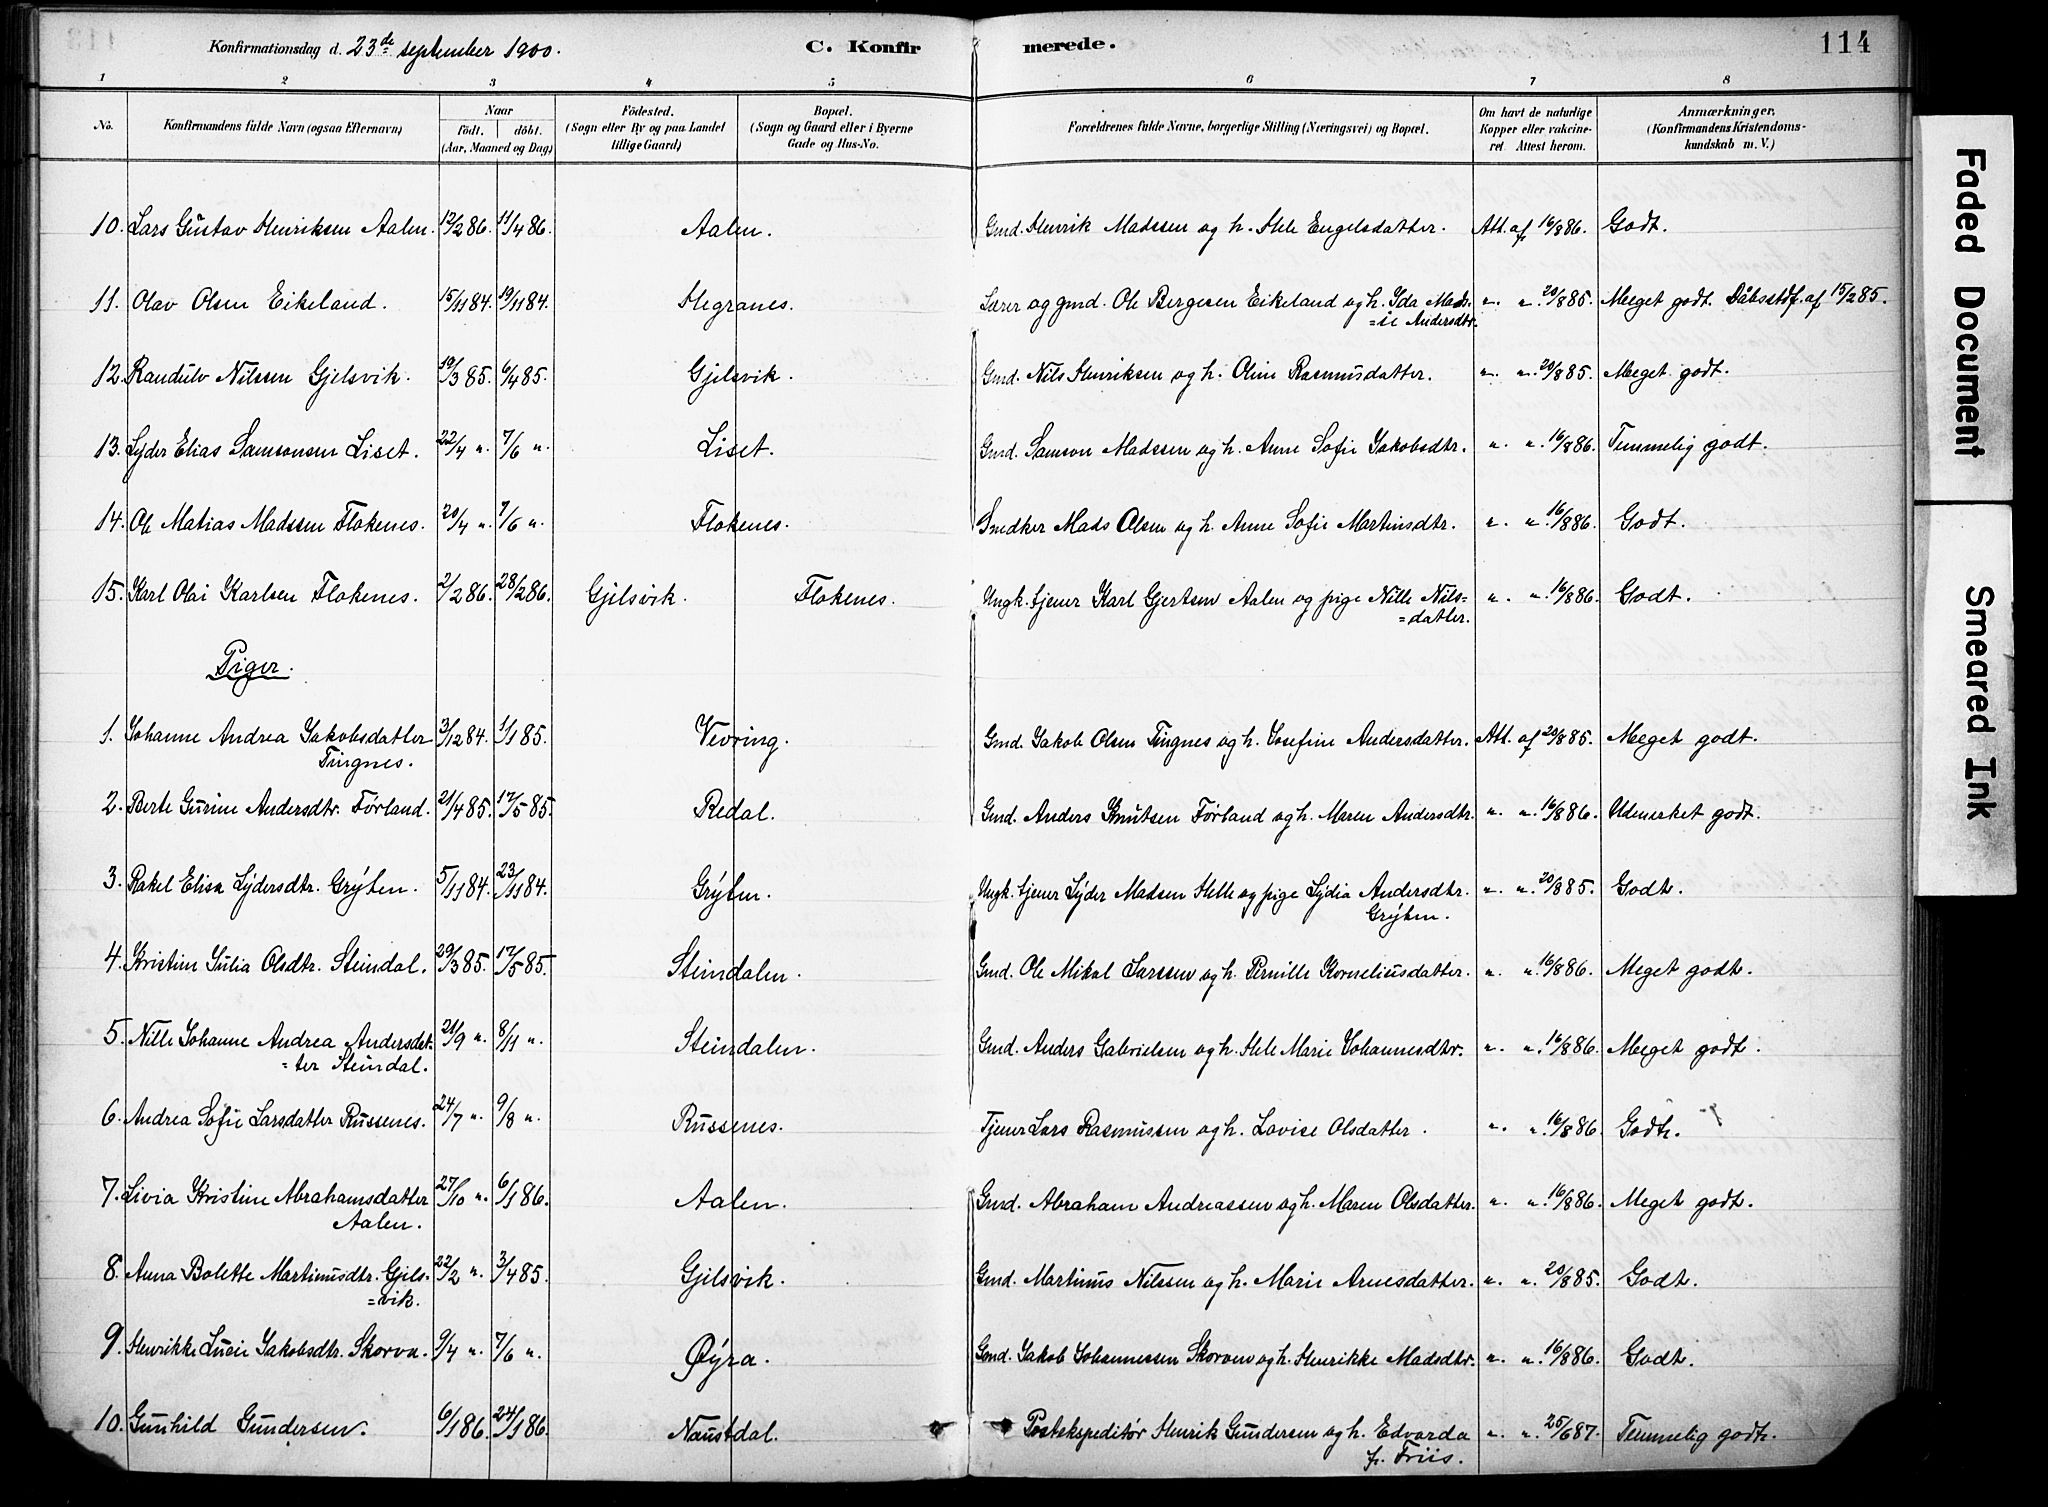 Konfirmationsdag d. 23de september 1900. C. Konfirmerede. 114
1 2 3 4 5 6 7 8
No. Konfirmandens fulde Navn (ogsaa Efternavn) Naar födt. döbt. (Aar, Maaned og Dag) Födested. (Sogn eller By og paa Landet tillige Gaard) Bopæl. (Sogn og Gaard eller i Byerne Gade og Hus-No. Forældrenes fulde Navne, borgerlige Stilling (Næringsvei) og Bopæl. Om havt de naturlige Kopper eller vakcineret. Attest herom. Anmærkninger. (Konfirmandens Kristendomskundskab m. V.)
10. Lars Gustav Henriksen Aalen. 12/2 86. 11/4 86. Aalen. Gmd. Henrik Madssen og h. Hele Engelsdatter. Att. af 16/8 86. Godt.
11. Olav Olsen Eikeland. 15/11 84. 19/11 84. Hegranes. Lærer og gmd. Ole Bergesen Eikeland og h. Ida Mad- " " 20/8 85. Meget godt. Dåbsattf. af 15/2 85.
=ie Andersdtr.
12. Randulv Nilssen Gjelsvik. 19/3 85. 6/4 85. Gjelsvik. Gmd. Nils Henriksen og h. Oline Rasmusdatter. " " 20/8 85. Meget godt.
13. Lyder Elias Samsonsen Liset. 22/4 " 7/6 " Liset. Gmd. Samson Madssen og h. Anne Sofie Jakobsdtr. " " 16/8 86. Temmelig godt.
14. Ole Matias Madssen Flokenes. 20/4 " 7/6 " Flokenes. Gmdker Mads Olsen og h. Anne Sofie Martinsdtr. " " 16/8 86. Godt.
15. Karl Olai Karlsen Flokenes. 2/2 86. 28/2 86. Gjelsvik. Flokenes. Ungk. tjener Karl Gjertsen Aalen og pige Nille Nils= " " 16/8 86. Godt.
=datter.
Piger.
1. Johanne Andrea Jakobsdatter 3/12 84. 1/1 85. Vevring. Gmd. Jakob Olsen Tingnes og h. Josefine Andersdatter. Att. af 20/8 85. Meget godt.
Tingnes.
2. Berte Gurine Andersdtr. Førland. 21/4 85. 17/5 85. Redal. Gmd. Anders Knutsen Førland og h. Maren Andersdtr. " " 16/8 86. Udmerket godt.
3. Rakel Elisa Lydersdtr. Grýten. 5/11 84. 23/11 84. Grýten. Ungk. tjener Lýder Madsen Helle og pige Lýdia Andersdtr. " " 20/8 85. Godt.
Grýten.
4. Kristine Julia Olsdtr. Steindal. 29/3 85. 17/5 85. Steindalen. Gmd. Ole Mikal Larssen og h. Pernille Korneliusdatter. " " 16/8 86. Meget godt.
5. Nille Johanne Andrea Andersdat- 21/9 " 8/11 " Steindalen. Gmd. Anders Gabrielsen og h. Hele Marie Johannesdtr. " " 16/8 86. Meget godt.
=ter Steindal.
6. Andrea Sofie Larsdatter Russenes. 24/7 " 9/8 " Russenes. Tjener Lars Rasmussen og h. Lovise Olsdatter. " " 16/8 86. Godt.
7. Livia Kristine Abrahamsdatter 27/10 " 6/1 86. Aalen. Gmd. Abraham Andreassen og h. Maren Olsdatter. " " 16/8 86. Meget godt.
Aalen.
8. Anna Bolette Martinusdtr. Gjels- 22/2 " 3/4 85. Gjelsvik. Gmd. Martinus Nilssen og h. Marie Arnesdatter. " " 20/8 85. Godt.
=vik.
9. Henrikke Lucie Jakobsdtr. Skorva. 9/4 " 7/6 " Øýra. Gmd. Jakob Johannessen Skorven og h. Henrikke Madsdtr. " " 16/8 86. Godt.
10. Gunhild Gundersen. 6/1 86. 24/1 86. Naustdal. Postekspeditór Henrik Gundersen og h. Edvarda " " 25/6 87. Temmelig godt.
f. Friis.
Faded Document
Smeared Ink